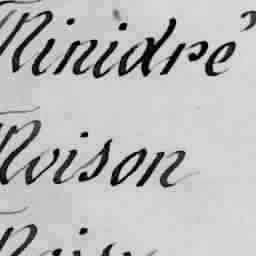 Minidré
Moison